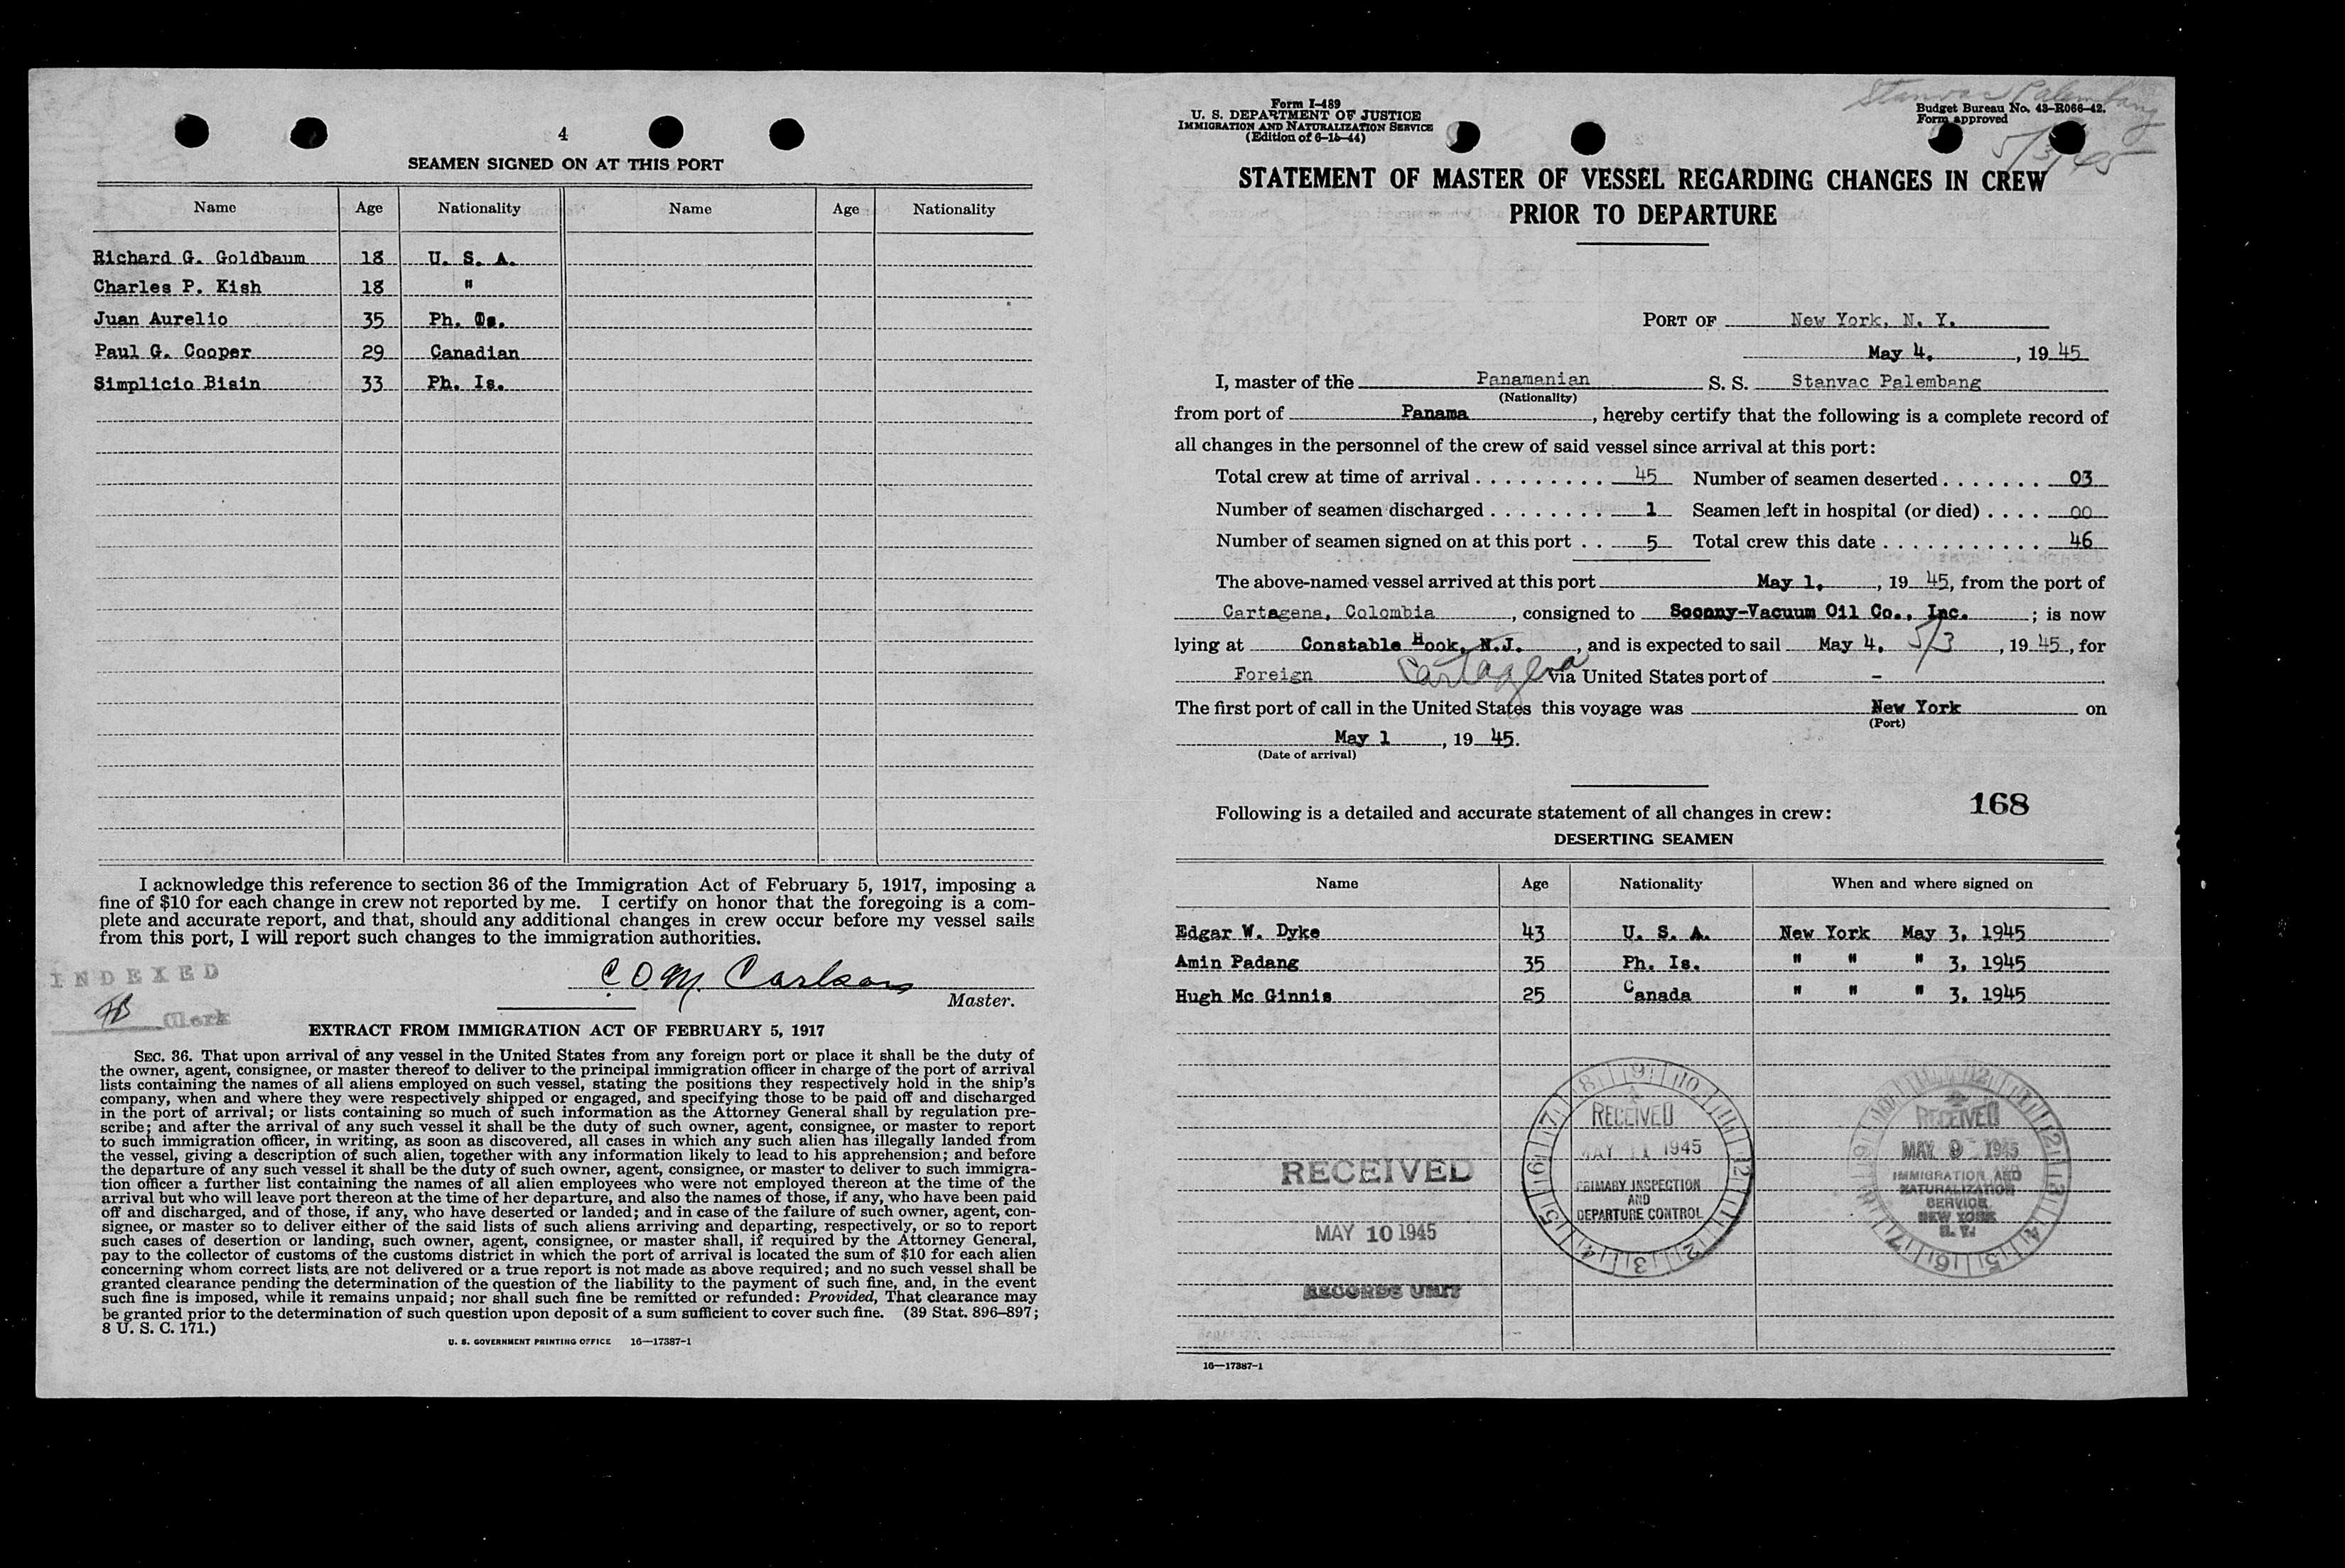 4
SEAMEN SIGNED ON AT THIS PORT
Name Age Nationality Name Age Nationality
Richard G. Goldbaum 18 U. S. A.
Charles P. Kish 18 "
Juan Aurelio 35 Ph. Is.
Paul G. Cooper 29 Canadian
Simplicio Bisin 33 Ph. Is.
I acknowledge this reference to section 36 of the Immigration Act of February 5, 1917, imposing a
fine of $10 for each change in crew not reported by me. I certify on honor that the foregoing is a com-
plete and accurate report, and that, should any additional changes in crew occur before my vessel sails
from this port, I will report such changes to the immigration authorities.
INDEXED
C. O. M. Carlson
Master.
Clerk
EXTRACT FROM IMMIGRATION ACT OF FEBRUARY 5, 1917
SEC. 36. That upon arrival of any vessel in the United States from any foreign port or place it shall be the duty of
the owner, agent, consignee, or master thereof to deliver to the principal immigration officer in charge of the port of arrival
lists containing the names of all aliens employed on such vessel, stating the positions they respectively hold in the ship's
company, when and where they were respectively shipped or engaged, and specifying those to be paid off and discharged
in the port of arrival; or lists containing so much of such information as the Attorney General shall by regulation pre-
scribe; and after the arrival of any such vessel it shall be the duty of such owner, agent, consignee, or master to report
to such immigration officer, in writing, as soon as discovered, all cases in which any such alien has illegally landed from
the vessel, giving a description of such alien, together with any information likely to lead to his apprehension; and before
the departure of any such vessel it shall be the duty of such owner, agent, consignee, or master to deliver to such immigra-
tion officer a further list containing the names of all alien employees who were not employed thereon at the time of the
arrival but who will leave port thereon at the time of her departure, and also the names of those, if any, who have been paid
off and discharged, and of those, if any, who have deserted or landed; and in case of the failure of such owner, agent, con-
signee, or master so to deliver either of the said lists of such aliens arriving and departing, respectively, or so to report
such cases of desertion or landing, such owner, agent, consignee, or master shall, if required by the Attorney General,
pay to the collector of customs of the customs district in which the port of arrival is located the sum of $10 for each alien
concerning whom correct lists are not delivered or a true report is not made as above required; and no such vessel shall be
granted clearance pending the determination of the question of the liability to the payment of such fine, and, in the event
such fine is imposed, while it remains unpaid; nor shall such fine be remitted or refunded: Provided, That clearance may
be granted prior to the determination of such question upon deposit of a sum sufficient to cover such fine. (39 Stat. 896–897;
8 U. S. C. 171.)
U. S. GOVERNMENT PRINTING OFFICE 16—17387-1
Stanvac Palembang
5/3/45
Form I-489
U. S. DEPARTMENT OF JUSTICE
IMMIGRATION AND NATURALIZATION SERVICE
(Edition of 6-15-44)
Budget Bureau No. 43-R066-42.
Form approved
STATEMENT OF MASTER OF VESSEL REGARDING CHANGES IN CREW
PRIOR TO DEPARTURE
PORT OF New York, N. Y.
May 4, , 19 45
I, master of the Panamanian S. S. Stanvac Palembang
(Nationality)
from port of Panama , hereby certify that the following is a complete record of
all changes in the personnel of the crew of said vessel since arrival at this port:
Total crew at time of arrival . . . . . . . . . 45 Number of seamen deserted . . . . . . . 03
Number of seamen discharged . . . . . . . . 1 Seamen left in hospital (or died) . . . . 00
Number of seamen signed on at this port . . 5 Total crew this date . . . . . . . . . . . . 46
The above-named vessel arrived at this port May 1, , 19 45, from the port of
Cartagena, Colombia , consigned to Socony-Vacuum Oil Co., Inc. ; is now
lying at Constable Hook, N.J. , and is expected to sail May 4, 5/3 , 19 45 , for
Foreign Cartagena via United States port of -
The first port of call in the United States this voyage was New York on
(Port)
May 1 , 19 45.
(Date of arrival)
168
Following is a detailed and accurate statement of all changes in crew:
DESERTING SEAMEN
Name Age Nationality When and where signed on
Edgar W. Dyke 43 U. S. A. New York May 3, 1945
Amin Padang 35 Ph. Is. " " " 3, 1945
Hugh Mc Ginnis 25 Canada " " " 3, 1945
RECEIVED
MAY 10 1945
RECORDS UNIT
RECEIVED
MAY 11 1945
PRIMARY INSPECTION
AND
DEPARTURE CONTROL
RECEIVED
MAY 9 1945
IMMIGRATION AND
NATURALIZATION
SERVICE
NEW YORK
N. Y.
16—17387-1